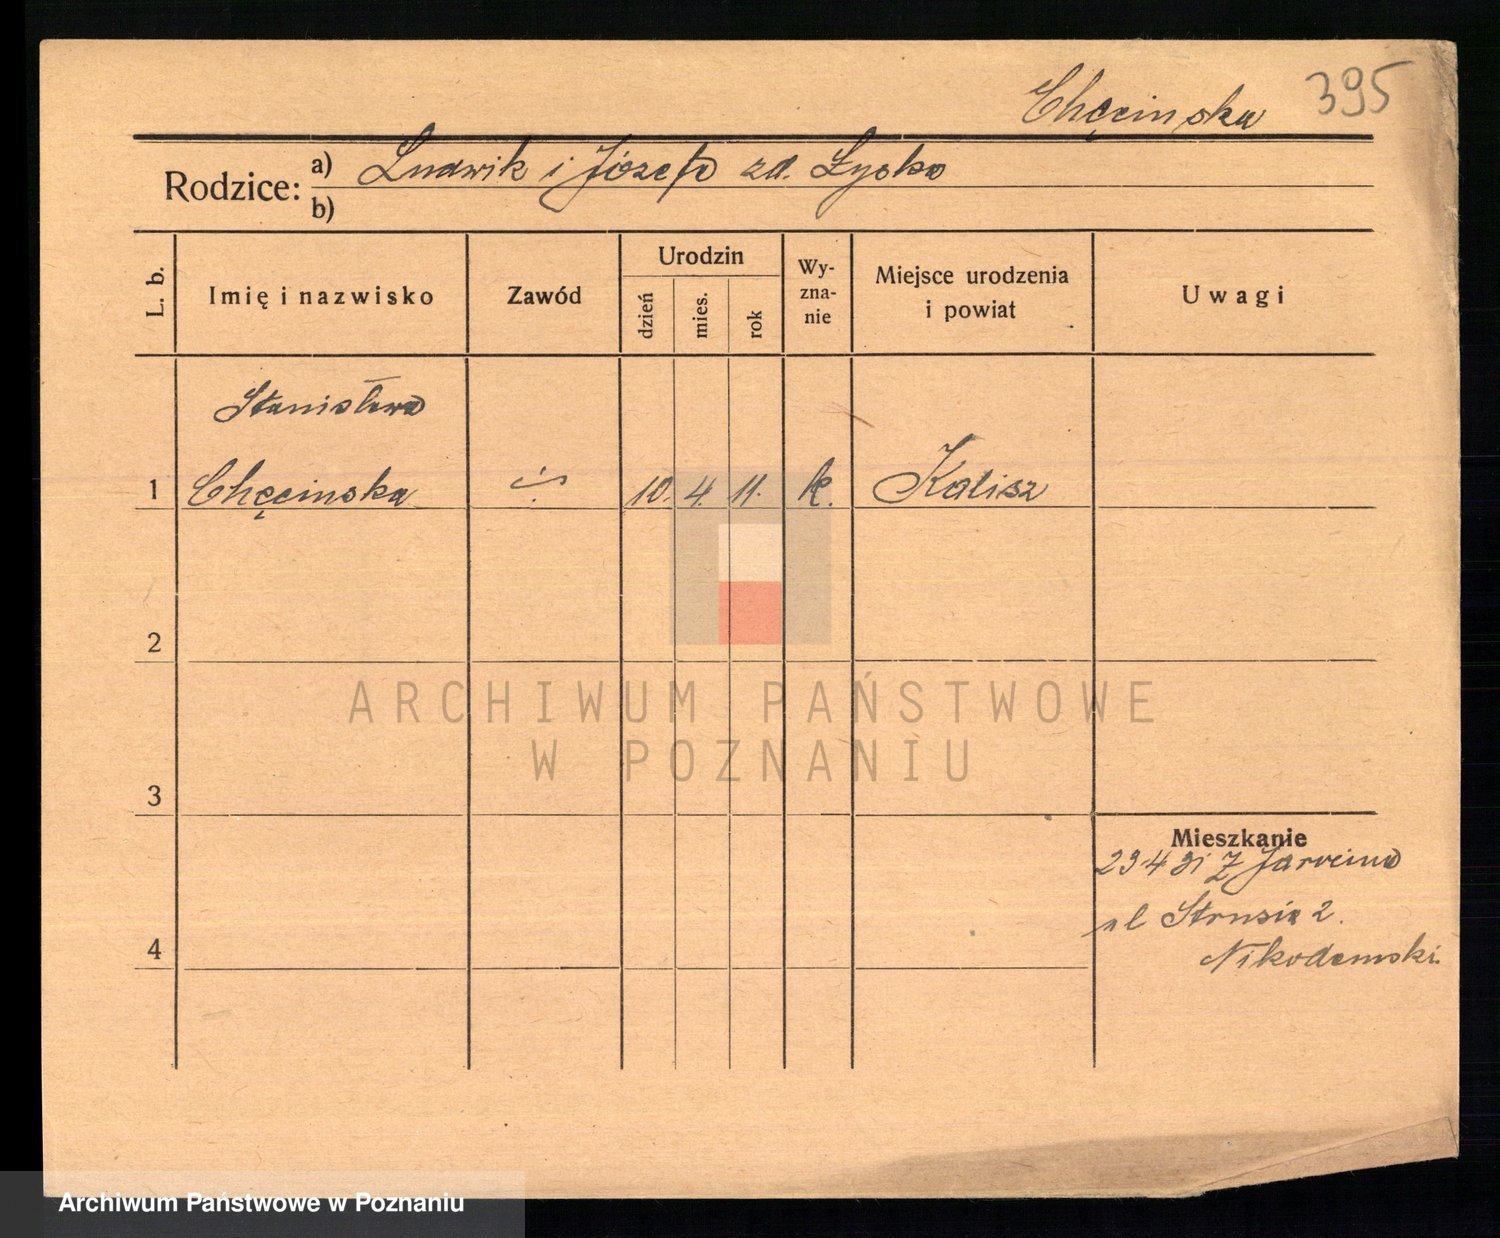 Chęcinska 395
Rodzice: a) Ludwik i Józefa zd. Łyska
b)
L. b. Imię i nazwisko Zawód Urodzin dzień mies. rok Wy-zna-nie Miejsce urodzenia i powiat Uwagi
Stanisława
1 Chęcinska 10. 4. 11. k. Kalisz
2
ARCHIWUM PAŃSTWOWE
W POZNANIU
3
Mieszkanie
23 4 31 Z Jarocina
ul Strusia 2.
4
Nikodemski
Archiwum Państwowe w Poznaniu